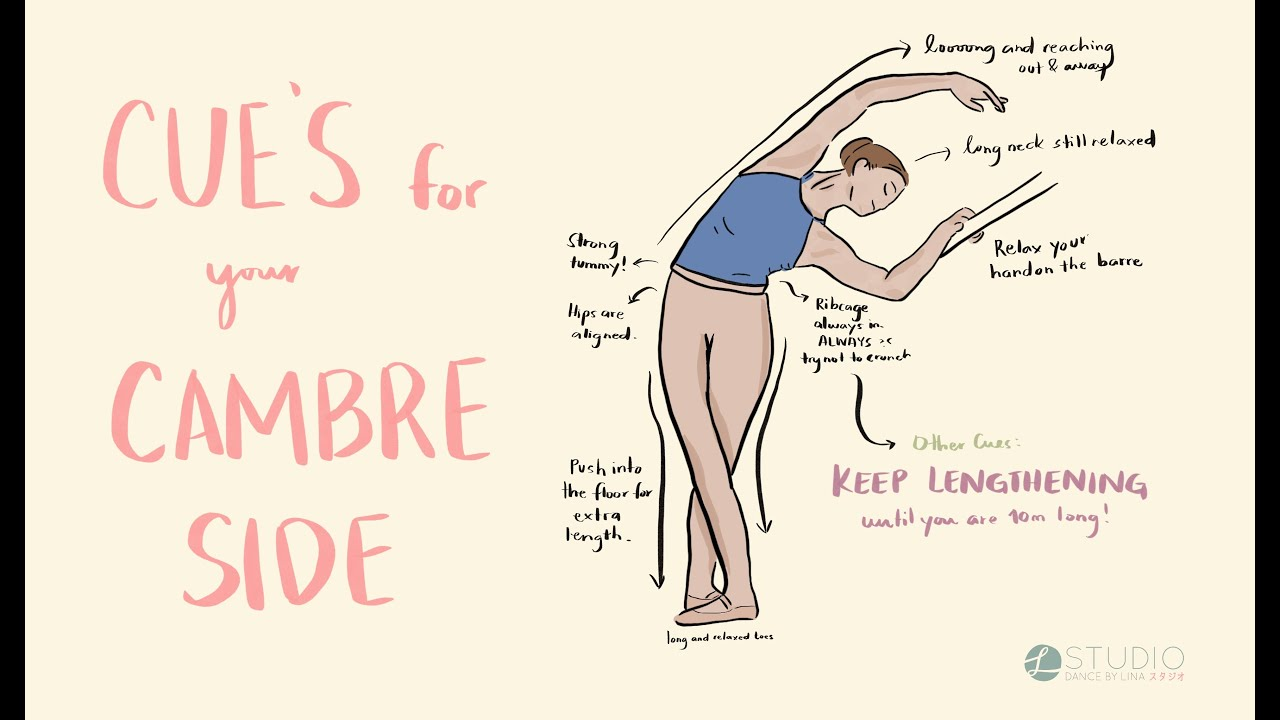 CUE'S for
your
CAMBRE
SIDE
loooong and reaching
out & away
long neck still relaxed
Relax your
hand on the barre
Strong
tummy!
Hips are
aligned.
Ribcage
always in
ALWAYS
try not to crunch
Push into
the floor for
extra
length.
long and relaxed toes
Other Cues:
KEEP LENGTHENING
until you are 10m long!
L STUDIO
DANCE BY LINA スタジオ